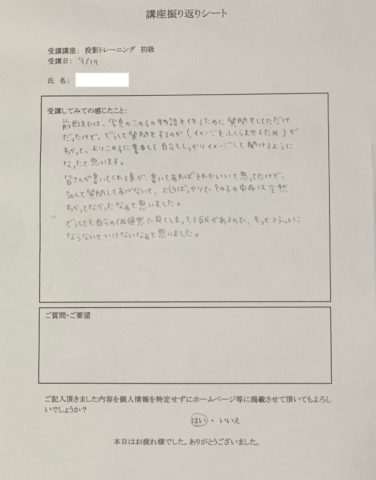 講座振り返りシート
受講講座： 投影トレーニング 初級
受講日： 9/19
氏 名：
受講してみての感じたこと：
前回までは、写真のこの子の物語を作るために質問をしてただけ
だったけど、どうして質問をするのか（イメージをふくらませるため）が
わかって、よりこの子に集中して自分もしっかりイメージして聞けるように
なったと思います。
皆さんが書いてくれる事が、書いてあればそれでいいと思ってたけど、
もっと質問してあげないと、ことばっかりで、その子の中身は全然
わかってなかったなぁと思いました。
どうしても自分の価値感で見てしまってる所があるので、もっとフラットに
ならないといけないなぁと思いました。
ご質問・ご要望
ご記入頂きました内容を個人情報を特定せずにホームページ等に掲載させて頂いてもよろし
いでしょうか？
はい ・ いいえ
本日はお疲れ様でした。ありがとうございました。